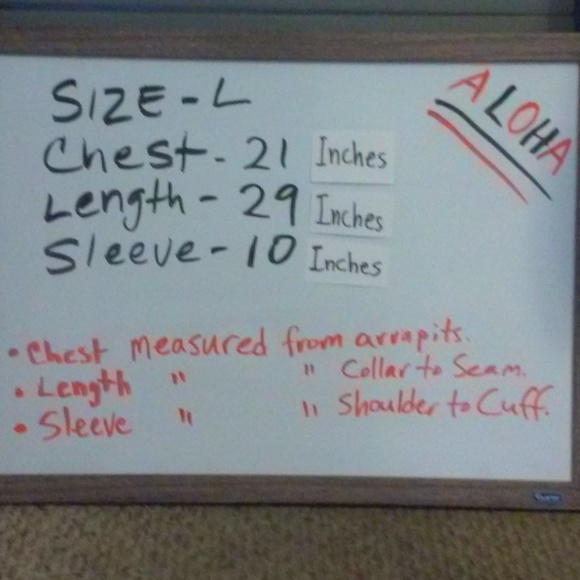 SIZE - L
ALOHA
Chest - 21 Inches
Length - 29 Inches
Sleeve - 10 Inches
• Chest measured from armpits.
• Length " " Collar to Seam.
• Sleeve " " Shoulder to Cuff.